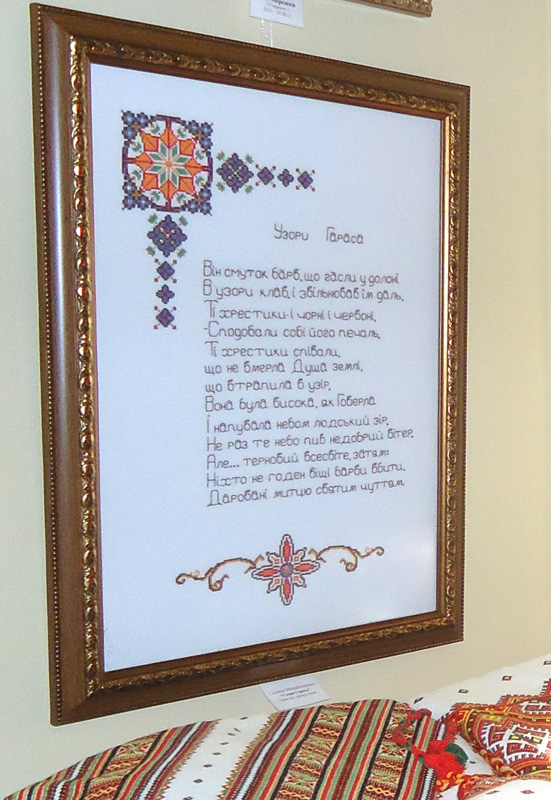 Узори Тараса
Він смуток барв, що гасли у долоні
В узори клав, і звільнював їм даль,
Ті хрестики-і чорні і червоні,
-Сподобали собі його печаль,
Ті хрестики співали,
що не вмерла Душа землі,
що втрапила в узір,
Вона була висока, як Говерла
І напувала небом людський зір,
Не раз те небо пив недобрий вітер,
Але... терновий всесвіте, затям:
Ніхто не годен віщі барви вбити,
Даровані митцю святим чуттям.